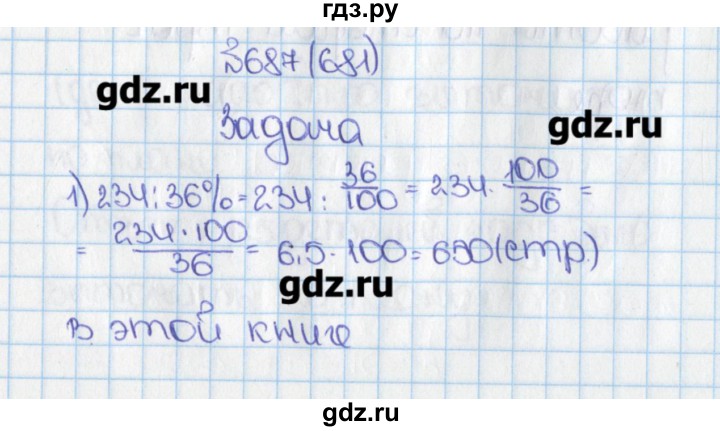 гдз.ру
№687(681)
gdz.ru
Задача
gdz.ru
1) 234:36%=234: 36/100 = 234· 100/36 =
= 234·100/36 = 6,5·100=650(стр.)
gdz.ru
в этой книге
gdz.ru